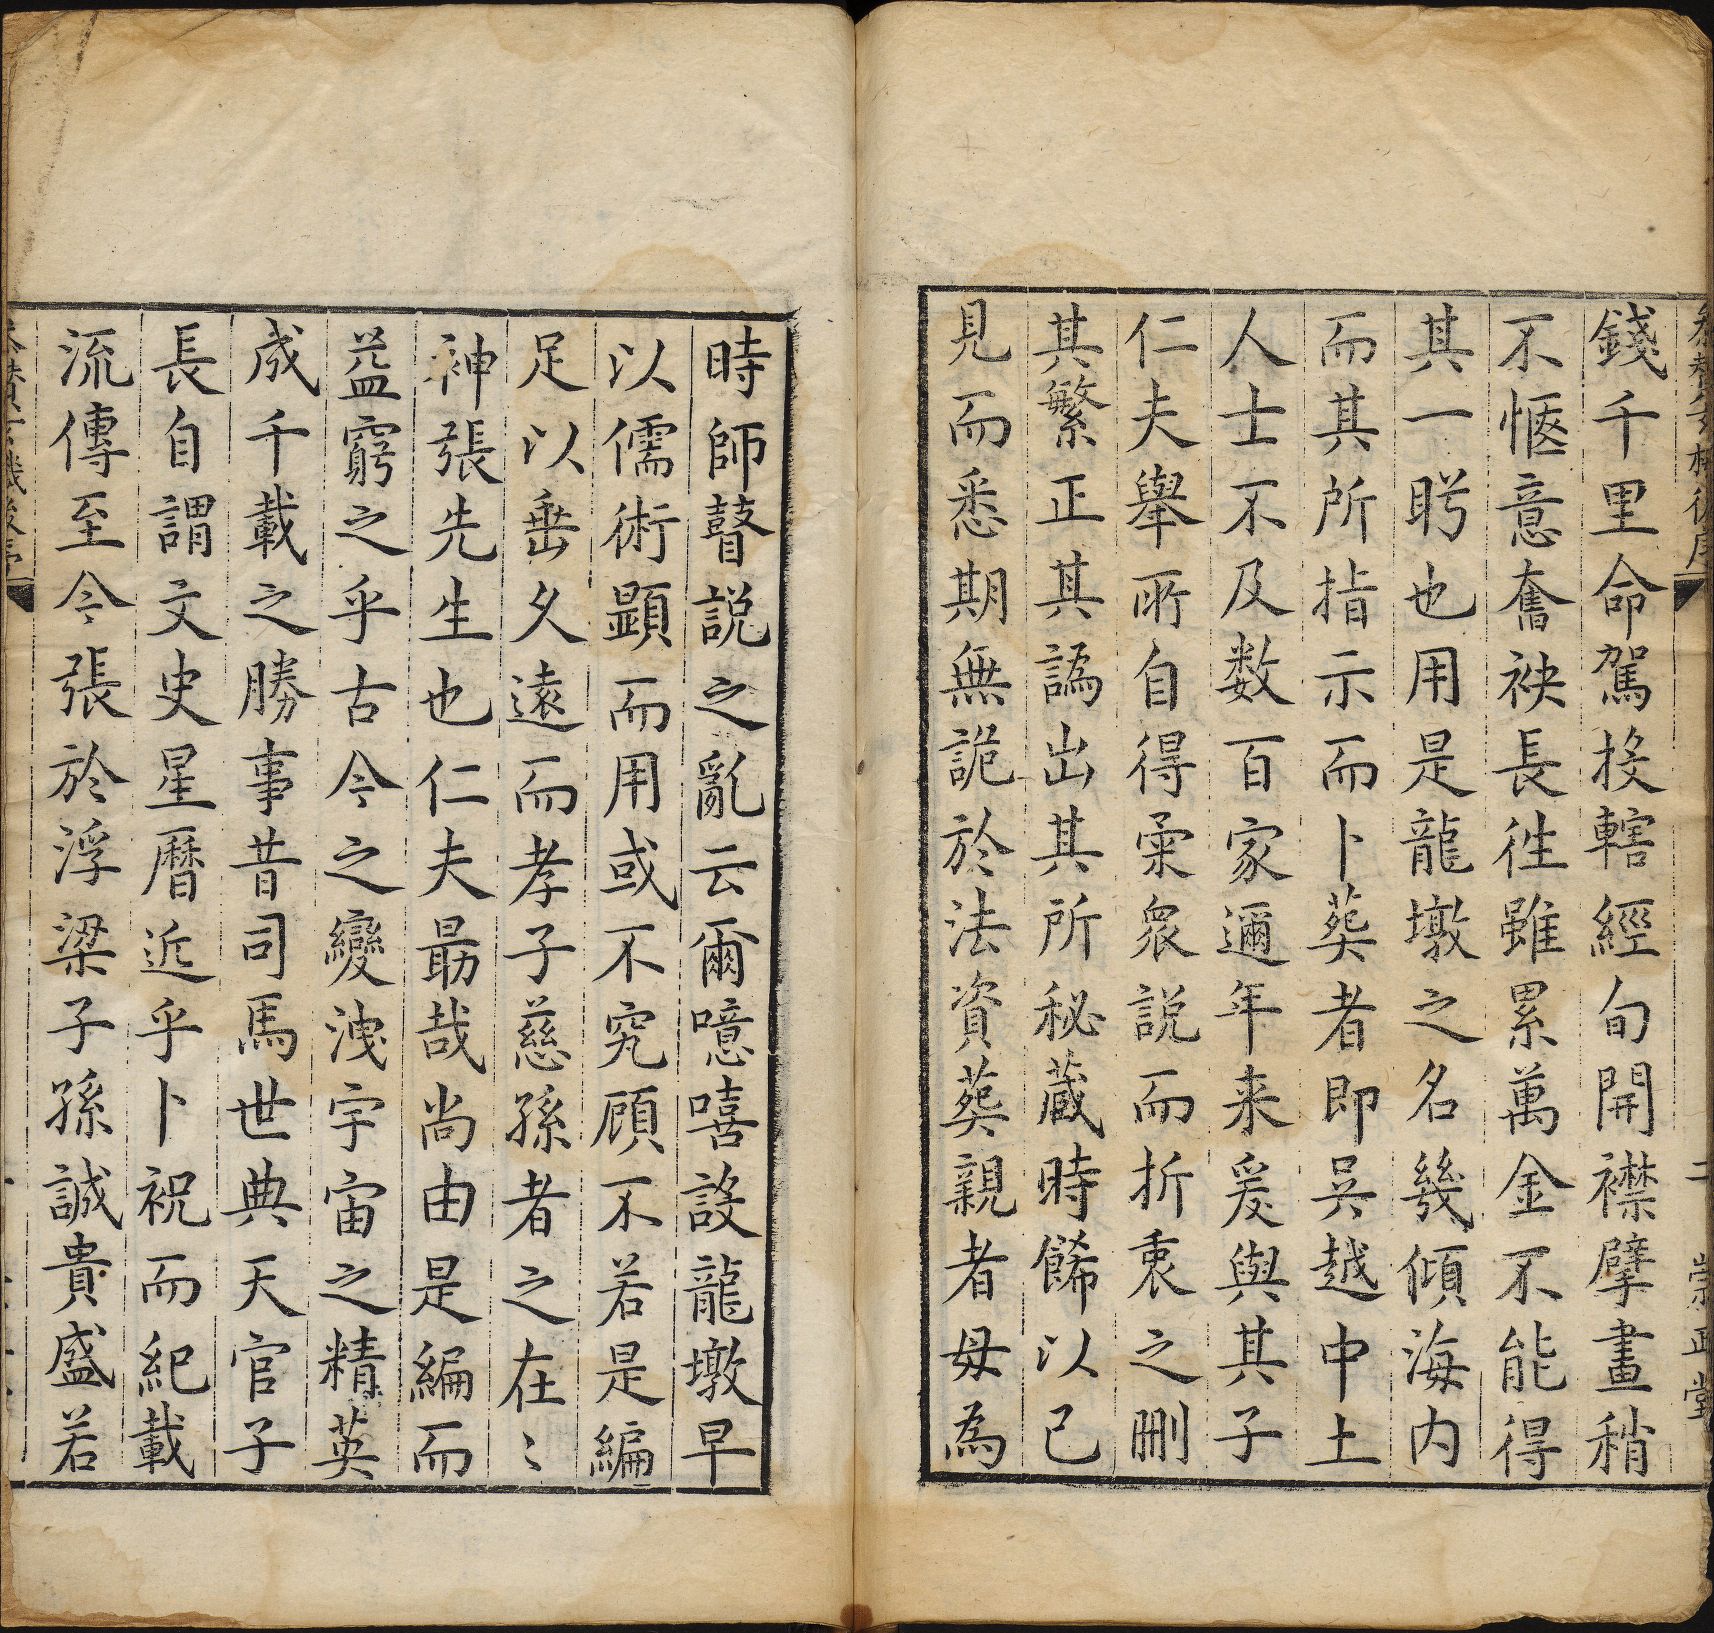 錢千里命駕投轄經旬開襟擘畫稍
不愜意奮袂長徃雖累萬金不能得
其一眄也用是龍墩之名幾傾海内
而其所指示而卜葬者即吳越中土
人士不及数百家邇年来爰與其子
仁夫舉所自得彚衆說而折衷之刪
其繁正其譌出其所秘藏時餙以已
見而悉期無詭於法資葬親者毋為
時師瞽説之亂云爾噫嘻設龍墩早
以儒術顯而用或不究顧不若是編
足以垂久遠而孝子慈孫者之在〻
神張先生也仁夫勗哉尚由是編而
益窮之乎古今之變洩宇宙之精英
成千載之勝事昔司馬世典天官子
長自謂文史星曆近乎卜祝而紀載
流傳至今張於浮梁子孫誠貴盛若
二
崇正堂